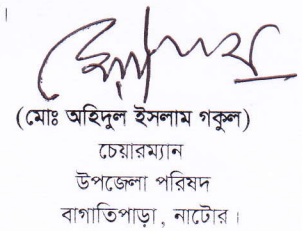 ।
(মোঃ অহিদুল ইসলাম গকুল)
চেয়ারম্যান
উপজেলা পরিষদ
বাগাতিপাড়া, নাটোর।